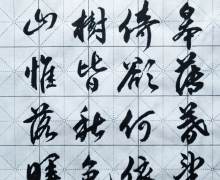 皋薄暮望
倚欲何依
樹皆秋色
山惟落暉